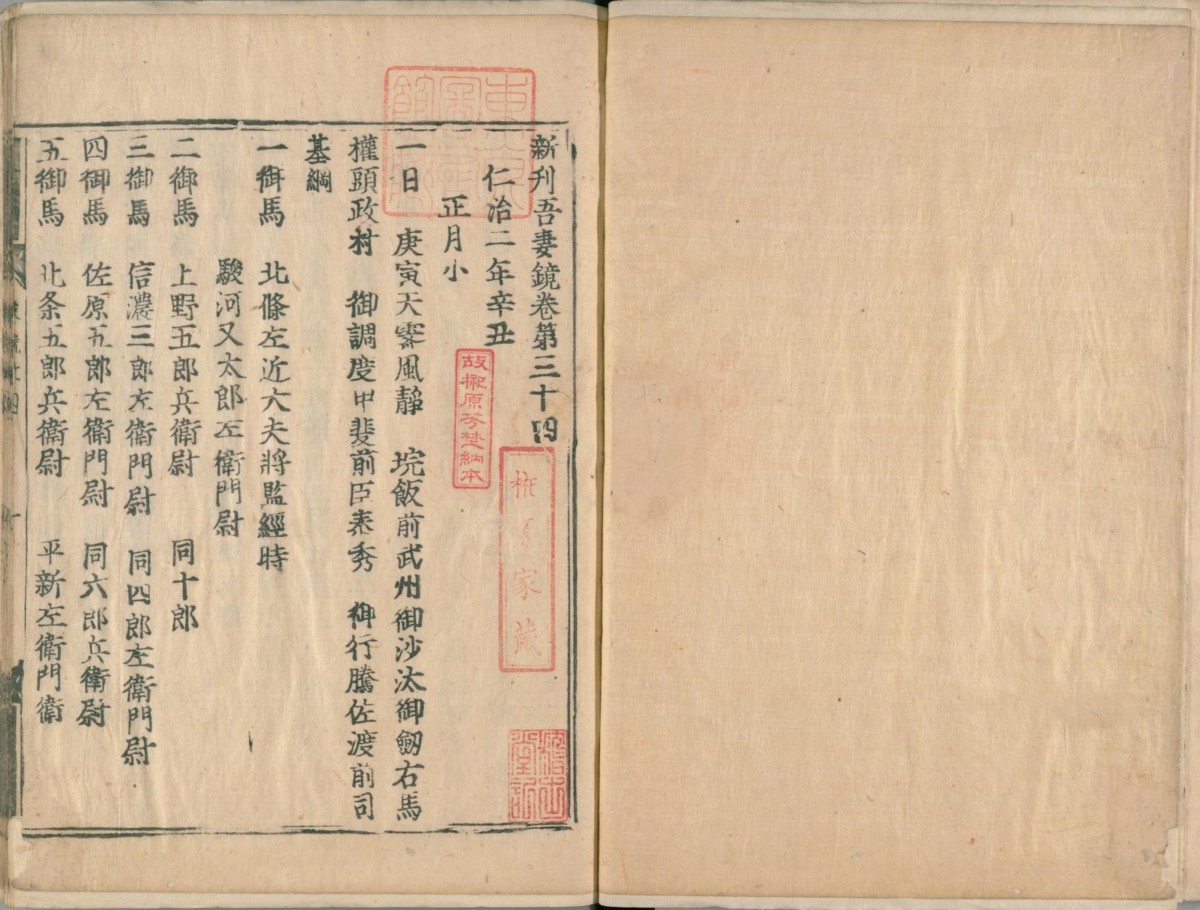 新刊吾妻鏡卷第三十四
仁治二年辛丑
正月小
一日 庚寅天霽風靜 垸飯前武州御沙汰御劔右馬
權頭政村 御調度甲斐前臣泰秀 御行騰佐渡前司
基綱
一御馬 北條左近大夫將監經時
駿河又太郎左衛門尉
二御馬 上野五郎兵衛尉 同十郎
三御馬 信濃三郎左衛門尉 同四郎左衛門尉
四御馬 佐原五郎左衛門尉 同六郎兵衛尉
五御馬 北条五郎兵衛尉 平新左衛門衛
故榊原芳埜納本
家藏